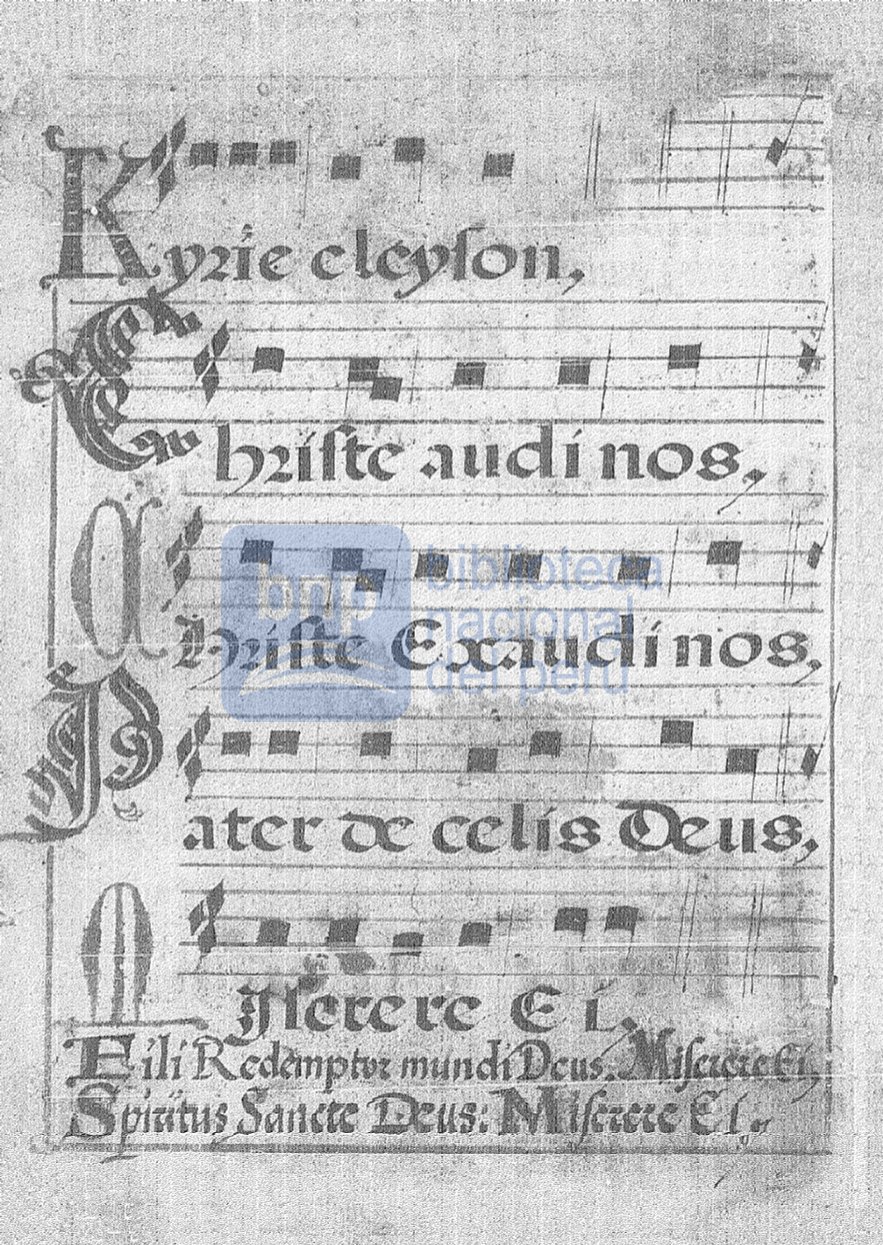 Kyrie eleyson,
Christe audi nos,
Christe Exaudi nos,
Pater de celis Deus,
Miserere Ei,
Fili Redemptor mundi Deus. Miserere Ei,
Spiritus Sancte Deus: Miserere Ei.
bnp biblioteca
nacional
del perú